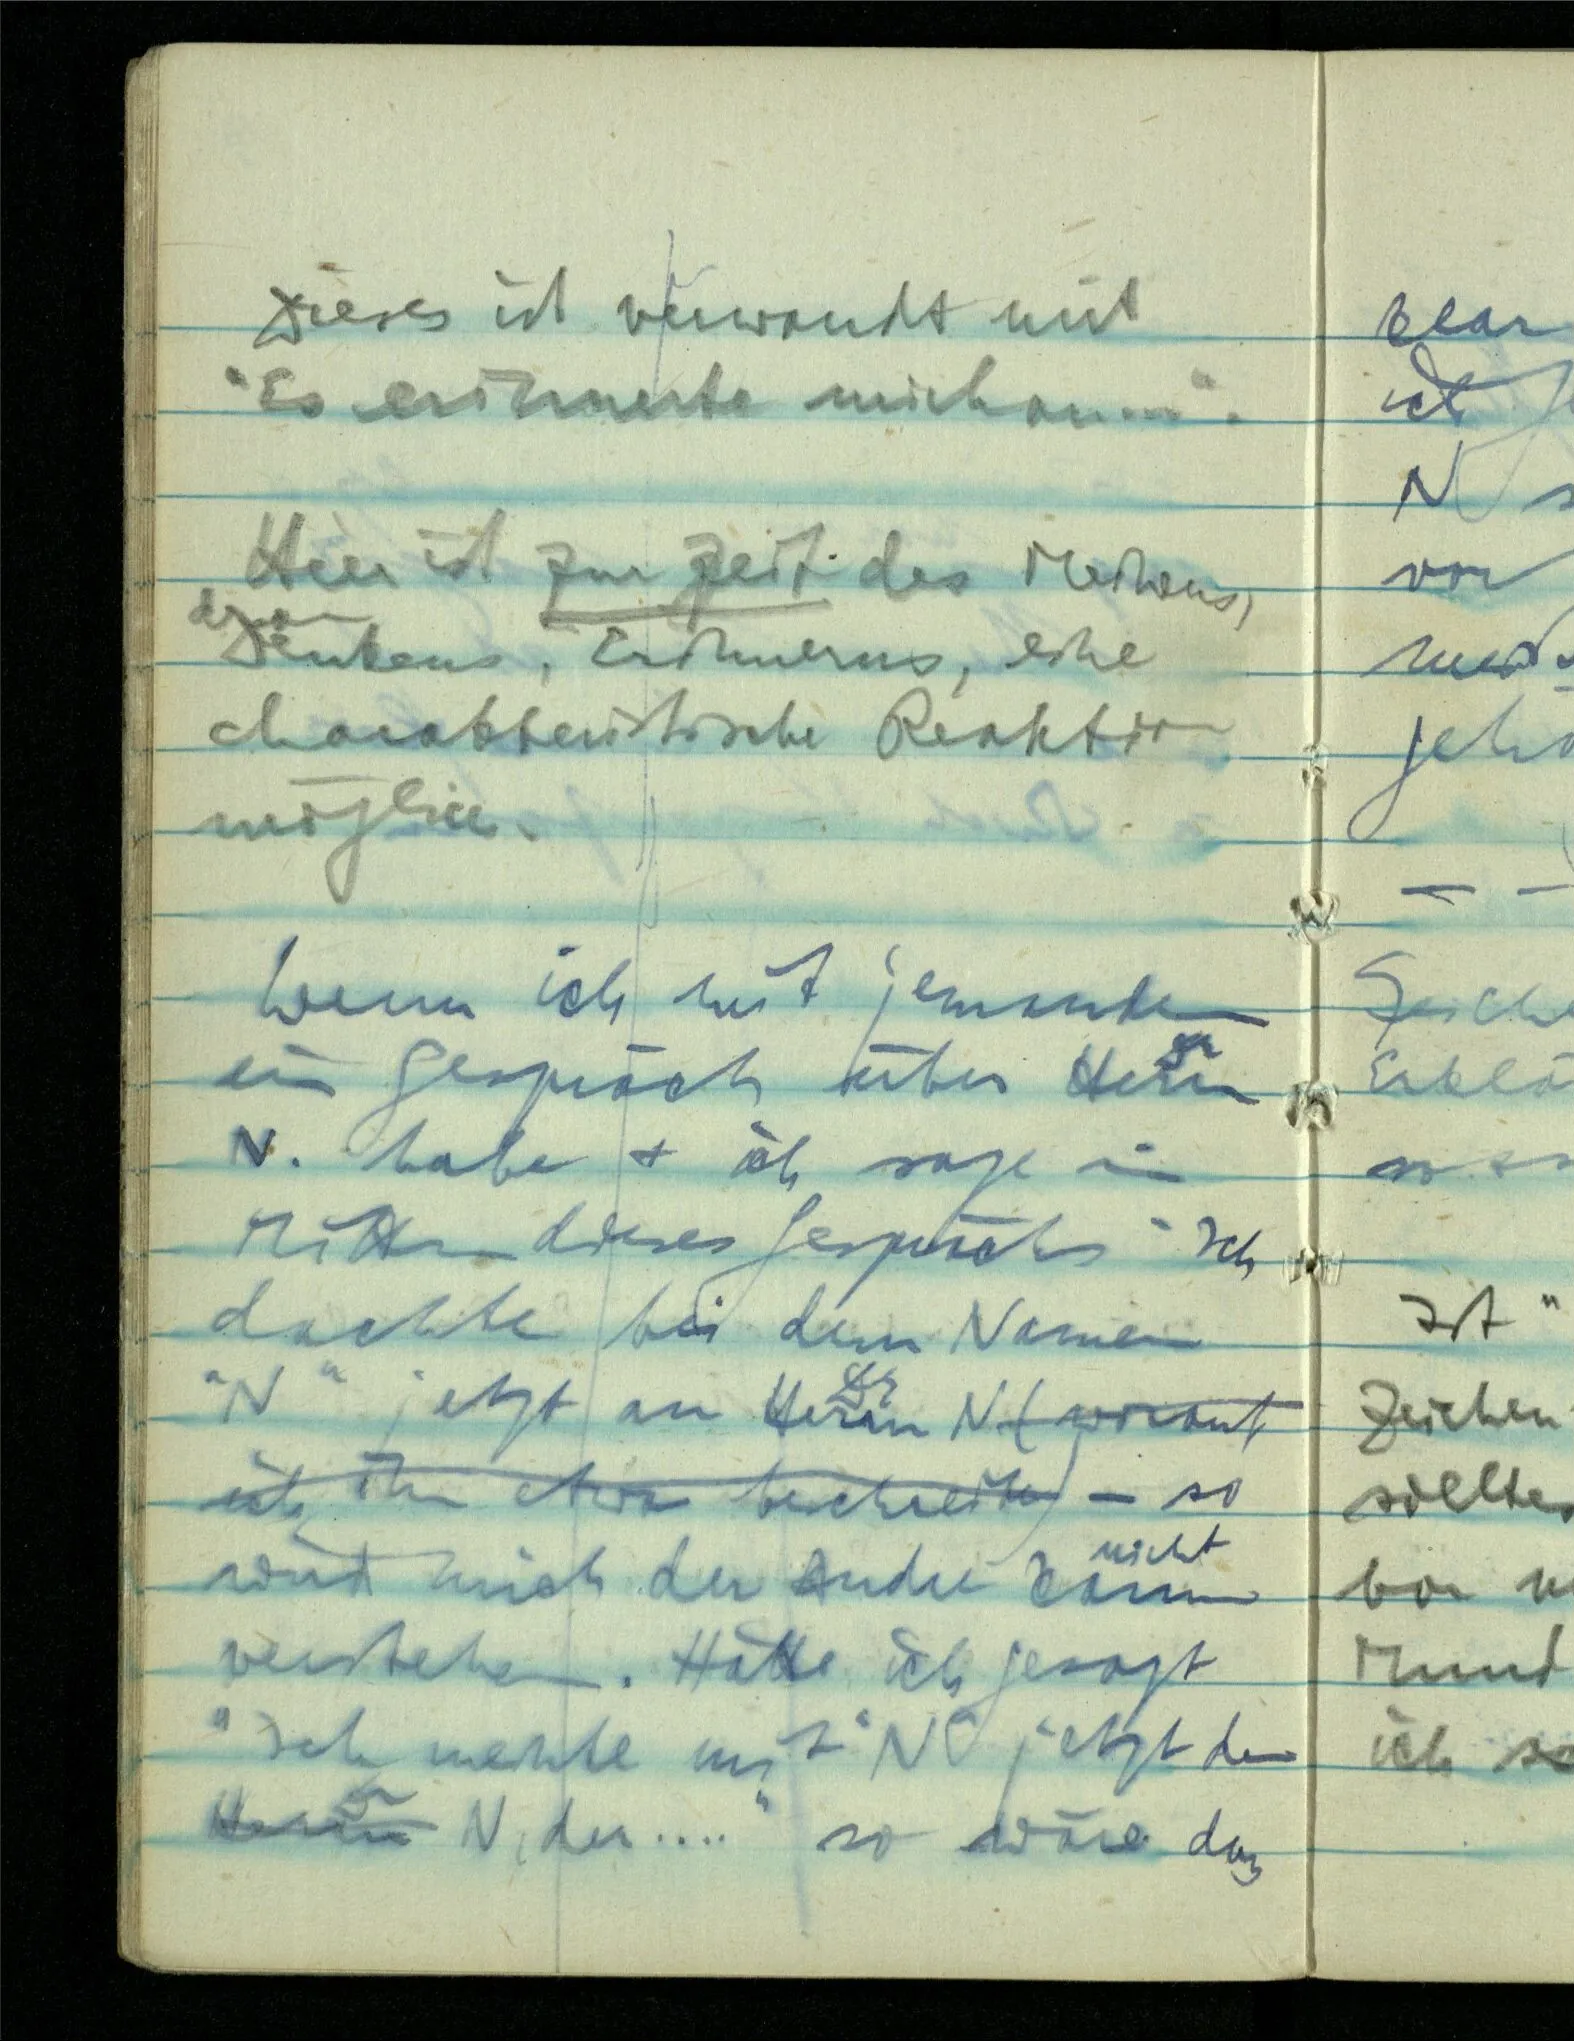 Dieses ist verwandt mit
"Es erinnerte mich an...".
Hier ist zur Zeit des Meinens,
daran
Denkens, Erinnerns, eine
charakteristische Reaktion
möglich.
Wenn ich mit jemandem
ein Gespräch über Herrn
N. habe + ich sage in
Mitten dieses Gesprächs "Ich
dachte bei dem Namen
"N" jetzt an Herrn N (worauf
ich ihn etwa beschreibe) – so
nicht
wird mich der Andre kaum
verstehen. Hätte ich gesagt
"Ich meinte mit "N" jetzt den
Herrn N, der ...." so wäre das
klar
ich
N
vor
gehö
— —
Erklä
Ist "
Zeichen
sollte
vor
Mund
ich